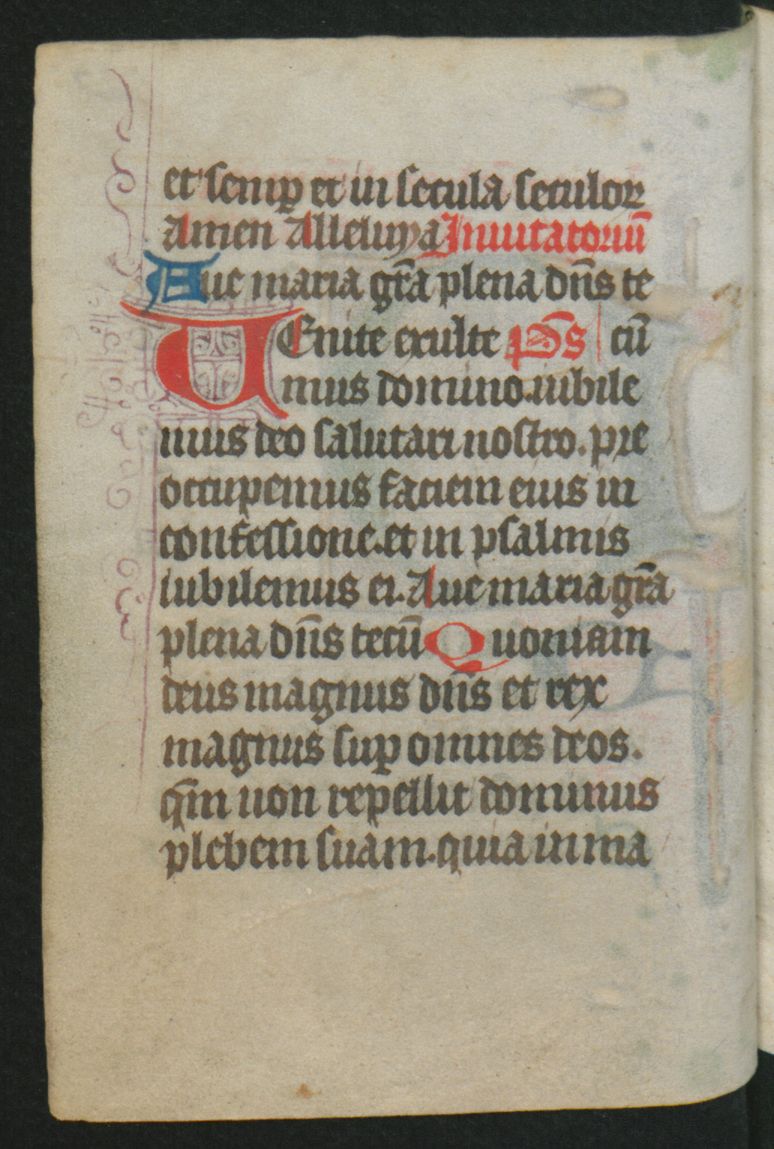 et semꝑ et in secula seculoꝝ
Amen Alleluya Inuitatoriū
Aue maria gr̄a plena dn̄s te
UEnite exulte p̄s cū
mus domino.iubile
mus deo salutari nostro.pre
occupemus faciem eius in
confessione.et in psalmis
iubilemus ei.Aue maria gr̄a
plena dn̄s tecū Quoniam
deus magnus dn̄s et rex
magnus suꝑ omnes deos.
qm̄ non repellit dominus
plebem suam.quia in ma